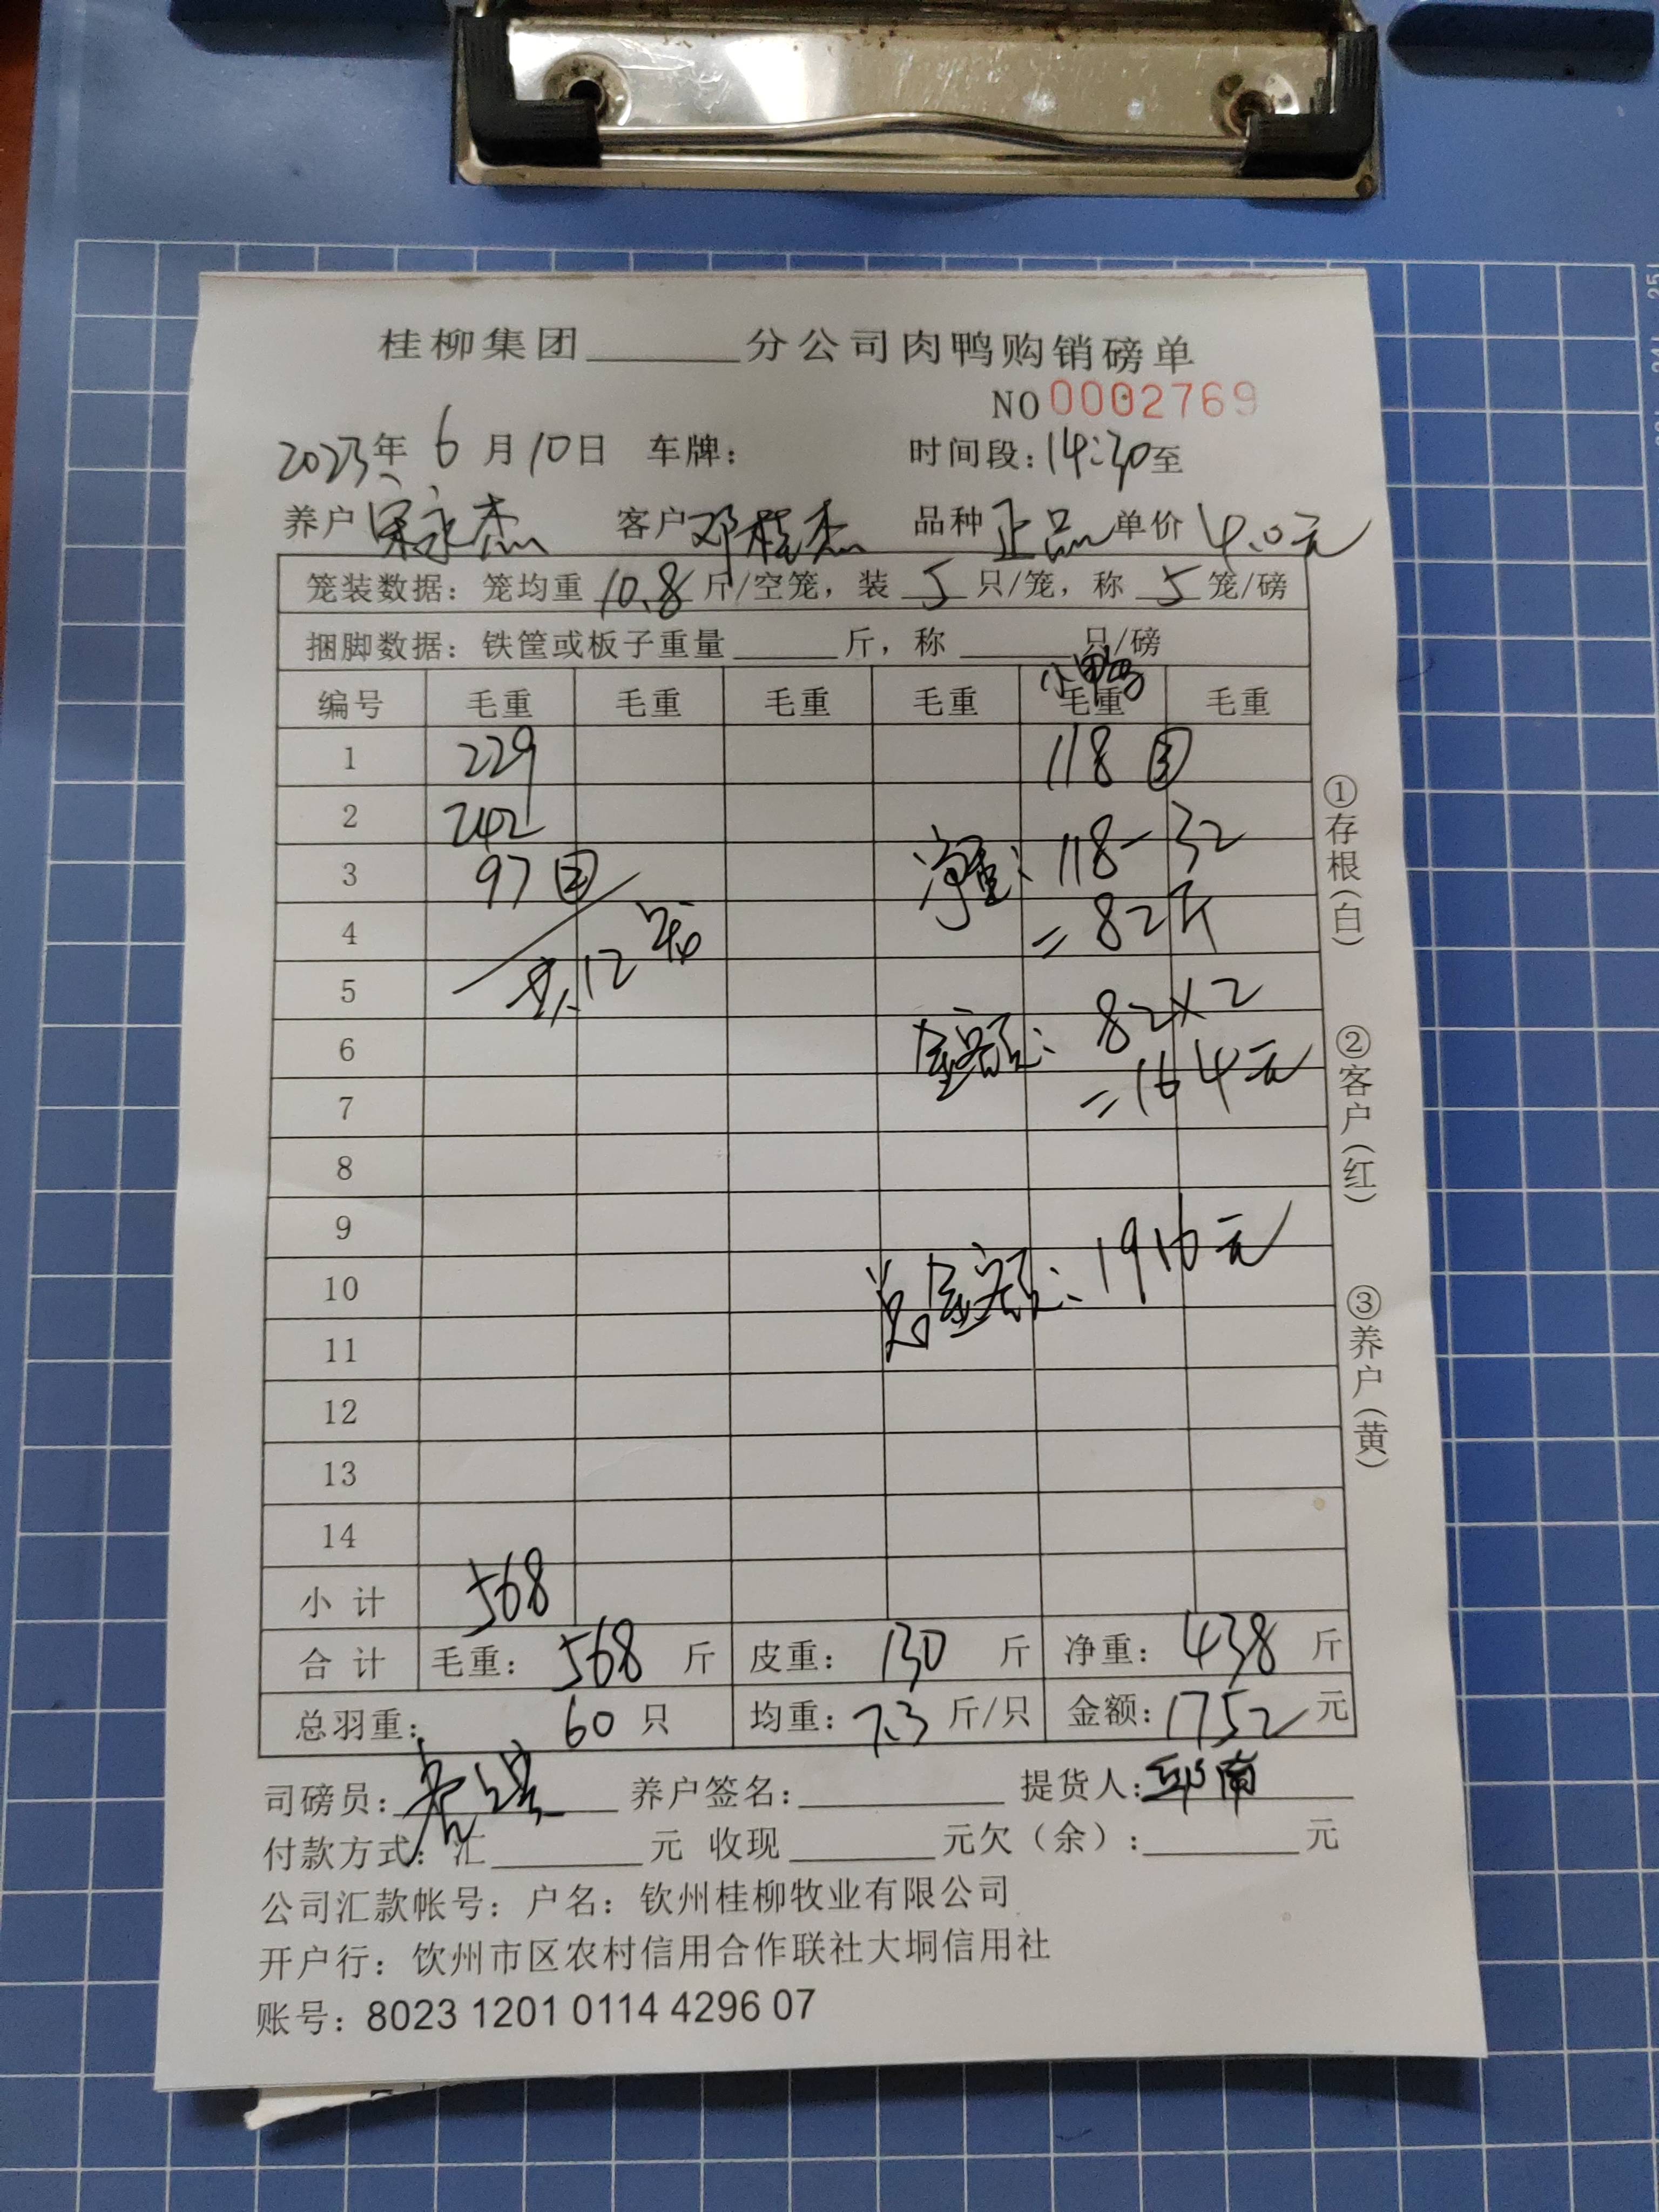 桂柳集团______分公司肉鸭购销磅单
NO 0002769
2023年 6月10日 车牌: 时间段:14:30至
养户 宋永杰 客户 邓桂杰 品种 正品 单价 4.0元
笼装数据: 笼均重 10.8 斤/空笼, 装 5 只/笼, 称 5 笼/磅
捆脚数据: 铁筐或板子重量______斤, 称______只/磅
小鸭
编号 毛重 毛重 毛重 毛重 毛重 毛重
1 229 118 ③
2 242
3 97 ② 净重: 118-32
4 共12笼 =82斤
5
6 金额: 82×2
7 =164元
8
9
10 总金额: 1916元
11
12
13
14
小计 568
合计 毛重: 568 斤 皮重: 130 斤 净重: 438 斤
总羽重: 60 只 均重: 7.3 斤/只 金额: 1752 元
司磅员: 养户签名: 提货人:
付款方式: 汇______元 收现______元欠(余):______元
公司汇款帐号: 户名: 钦州桂柳牧业有限公司
开户行: 饮州市区农村信用合作联社大垌信用社
账号: 8023 1201 0114 4296 07
①存根(白)
②客户(红)
③养户(黄)